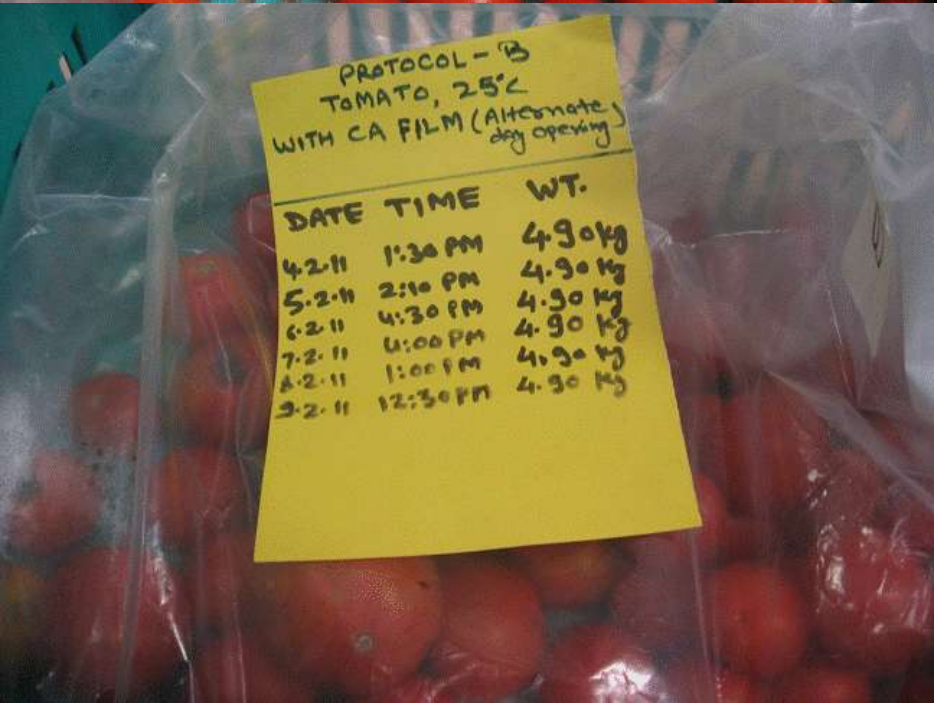 PROTOCOL - B
TOMATO, 25°C
WITH CA FILM (Alternate
day opening)
DATE TIME WT.
4.2.11 1:30 PM 4.90 kg
5.2.11 2:10 PM 4.90 kg
6.2.11 4:30 PM 4.90 kg
7.2.11 4:00 PM 4.90 kg
8.2.11 1:00 PM 4.90 kg
9.2.11 12:30 PM 4.90 kg